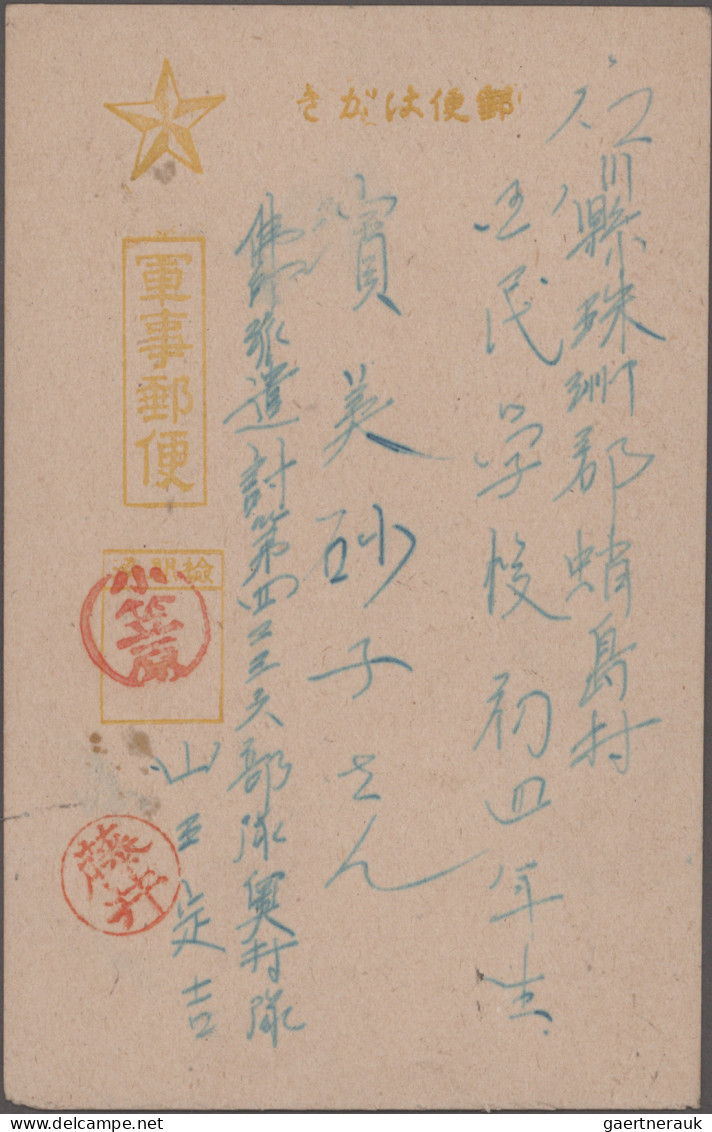 郵便はがき
軍事郵便
検閲済
小笠原
藤井
石川縣珠洲郡蛸島村
国民学校初四年生
濱美砂子さん
佛印派遣討第四二三六部隊奥村隊
山王定吉
gaertnerauk